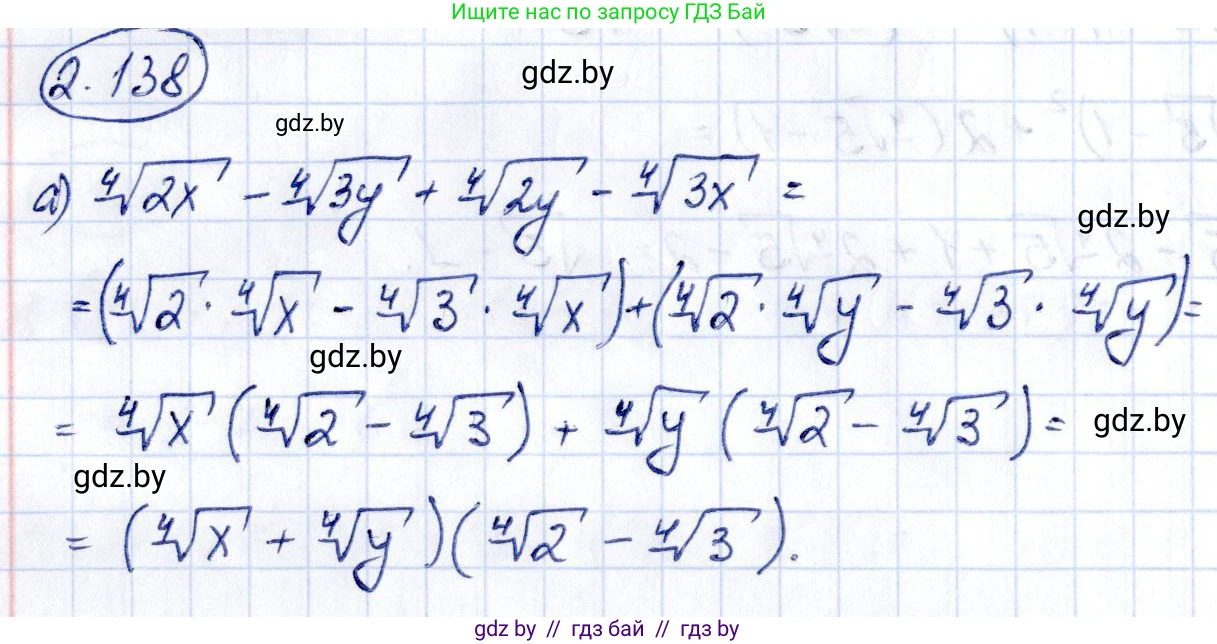 Ищите нас по запросу ГДЗ Бай
2.138
gdz.by
gdz.by
а) ∜2x − ∜3y + ∜2y − ∜3x =
gdz.by
= (∜2 · ∜x − ∜3 · ∜x) + (∜2 · ∜y − ∜3 · ∜y) =
gdz.by
= ∜x (∜2 − ∜3) + ∜y (∜2 − ∜3) =
gdz.by
gdz.by
= (∜x + ∜y)(∜2 − ∜3).
gdz by // гдз бай // гдз by